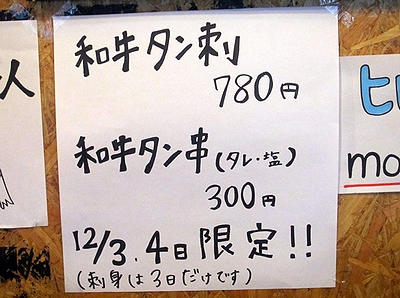 和牛タン刺
780円
和牛タン串(タレ・塩)
300円
12/3.4日限定!!
(刺身は3日だけです)
人
ヒ
mo